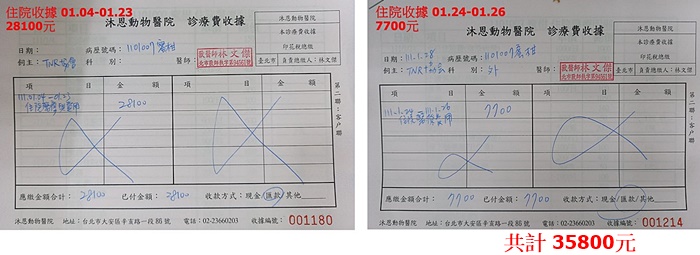 住院收據 01.04-01.23
28100元
沐恩動物醫院 診療費收據
沐恩動物醫院
本診療費收據
印花稅總繳
臺北市 負責總繳人:林文傑
日期:
病歷號碼:1101007蜜柑
飼主:TNR協會 科別: 醫師:
獸醫師林文傑
項目 金額 項目 金額
111.01.04-01.23
住院醫療費用
28100
第二聯:客戶聯
應繳金額合計:28100 已付金額:28100 收款方式:現金/匯款/其他
沐恩動物醫院 地址:台北市大安區辛亥路一段86號 電話:02-23660203 收據編號:001180
住院收據 01.24-01.26
7700元
沐恩動物醫院 診療費收據
沐恩動物醫院
本診療費收據
印花稅總繳
臺北市 負責總繳人:林文傑
日期:111.1.28 病歷號碼:1101007蜜柑
飼主:TNR協會 科別:外 醫師:
獸醫師林文傑
項目 金額 項目 金額
111.1.24-111.1.26
住院醫療費用
7700
第二聯:客戶聯
應繳金額合計:7700 已付金額:7700 收款方式:現金/匯款/其他
沐恩動物醫院 地址:台北市大安區辛亥路一段86號 電話:02-23660203 收據編號:001214
共計 35800元